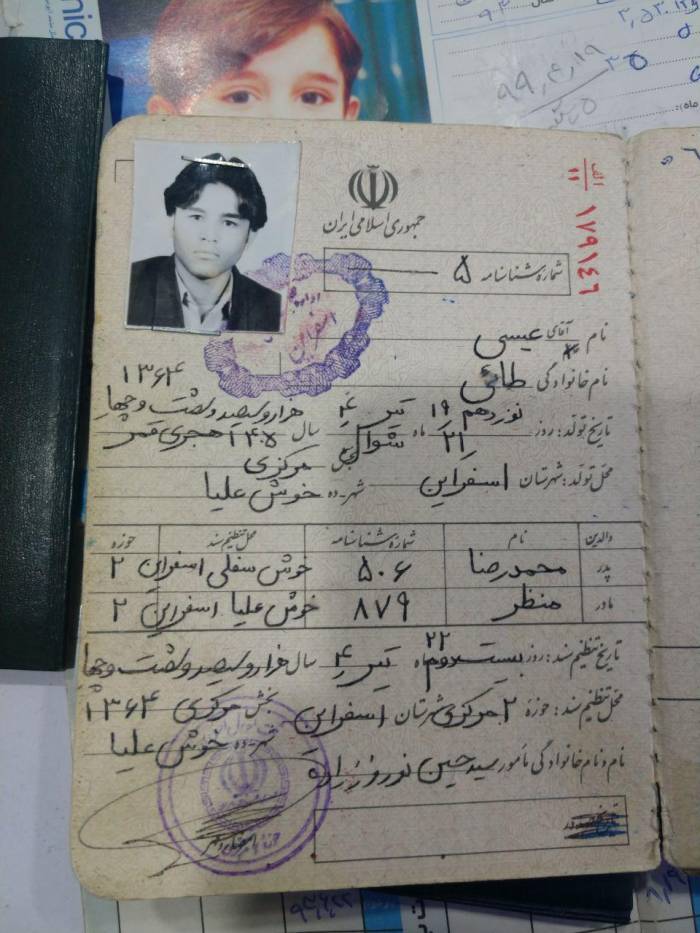 nic
۹۹,۴,۱۹
الف
۱۱
۱۷۹۱۴۶
جمهوری اسلامی ایران
شماره شناسنامه ۵
نام آقای عیسی
نام خانوادگی طائی
۱۳۶۴
تاریخ تولد: روز نوزدهم ۱۹ ماه تیر ۴ سال هزار و سیصد و شصت و چهار
۲۱ شوال ۱۴۰۵ هجری قمر
محل تولد: شهرستان اسفراین بخش مرکزی
شهر-ده خوش علیا
والدین نام شماره شناسنامه محل تنظیم سند حوزه
پدر محمدرضا ۵۰۶ خوش سفلی اسفراین ۲
مادر منظر ۸۷۹ خوش علیا اسفراین ۲
تاریخ تنظیم سند: روز بیست و دوم ۲۲ ماه تیر ۴ سال هزار و سیصد و شصت و چهار
محل تنظیم سند: حوزه ۲ مرکزی شهرستان اسفراین بخش مرکزی ۱۳۶۴
شهر-ده خوش علیا
نام و نام خانوادگی مأمور سید حسین نوروززاده